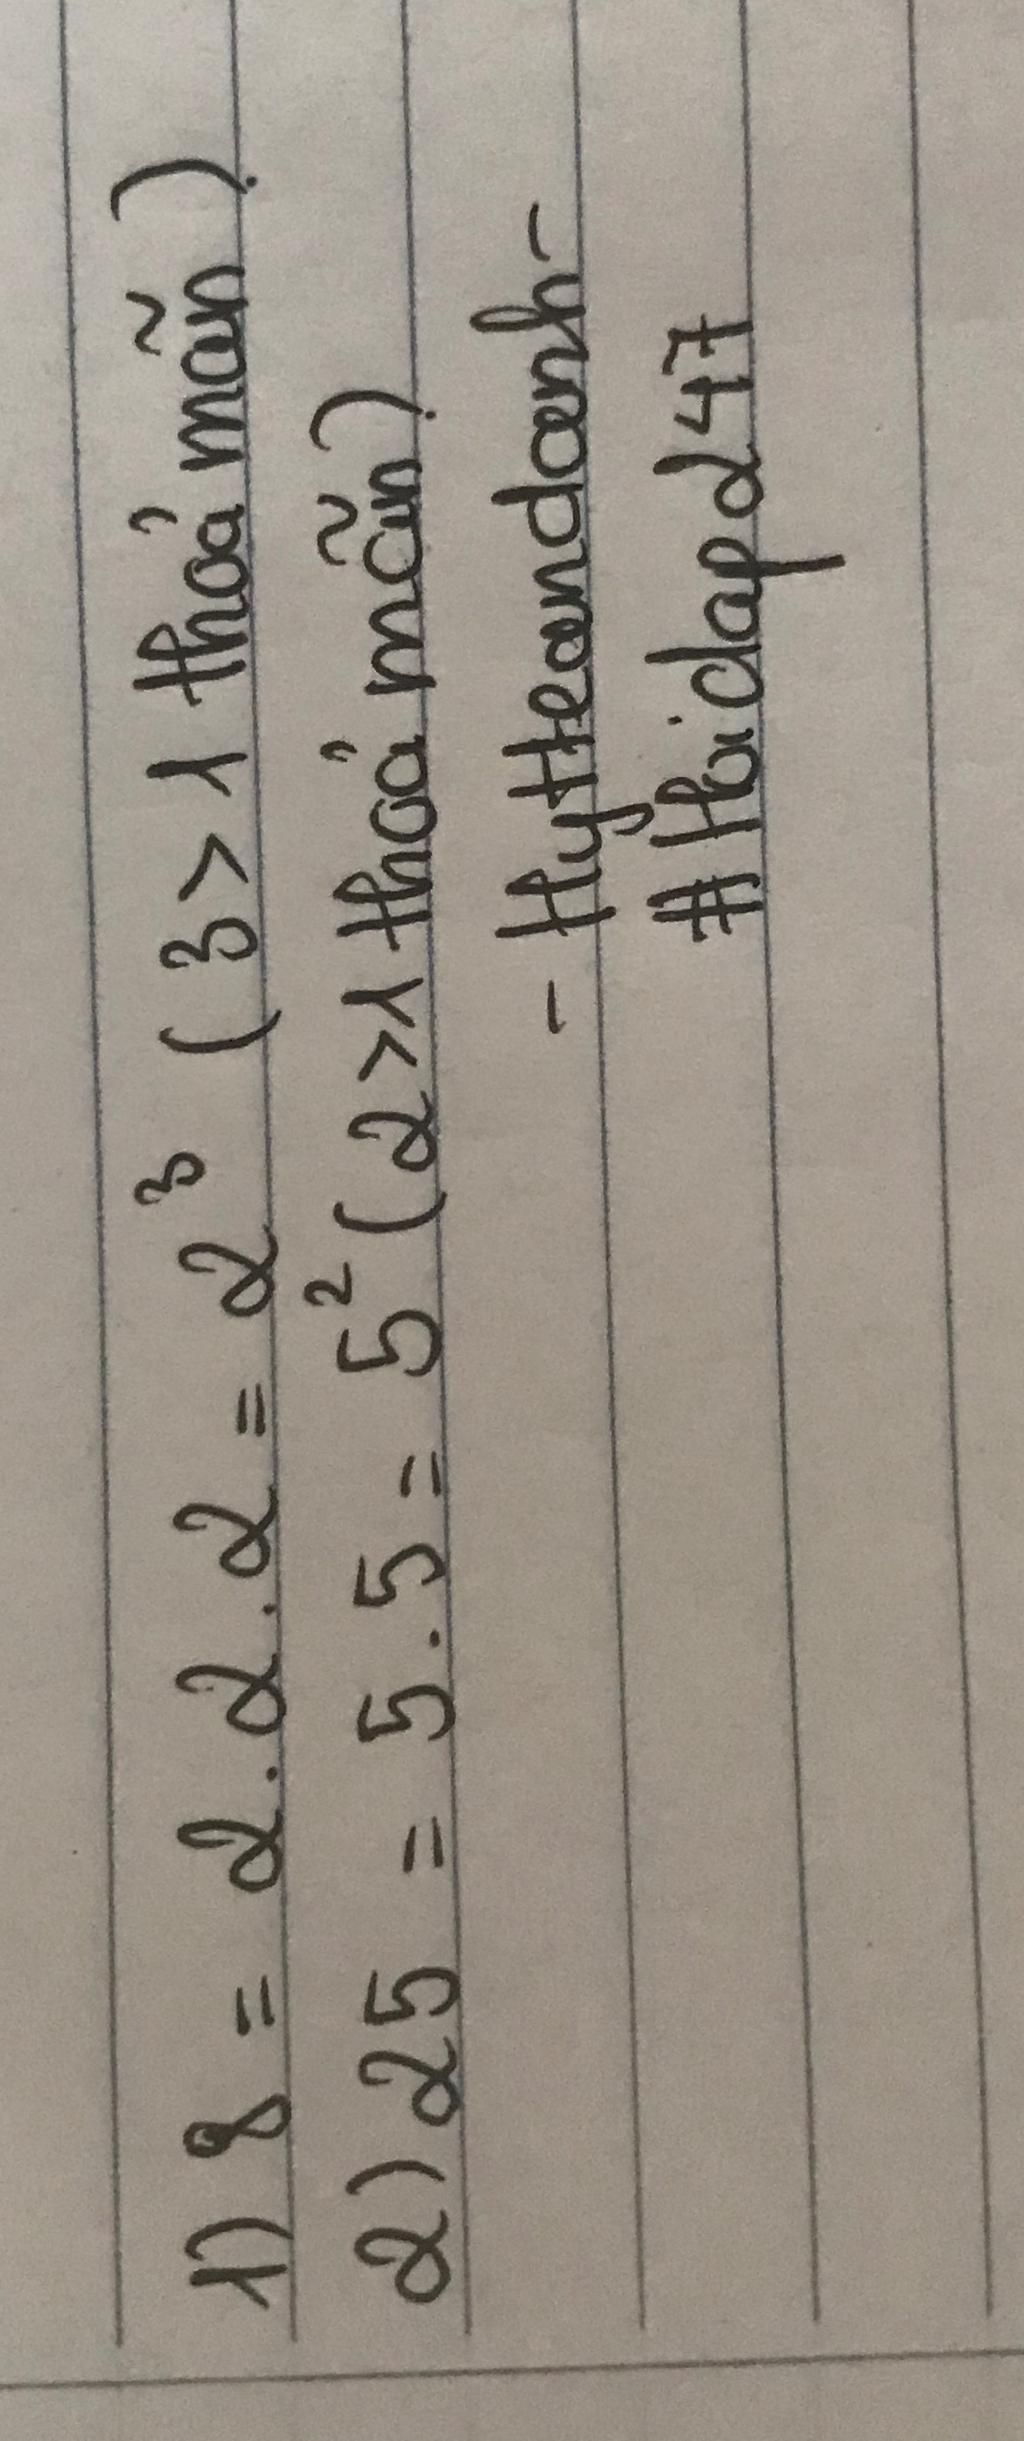 1) 8 = 2.2.2 = 2³ (3>1 thoả mãn).
2) 25 = 5.5 = 5² (2>1 thoả mãn).
- Hytteandanh -
# Hoidap247